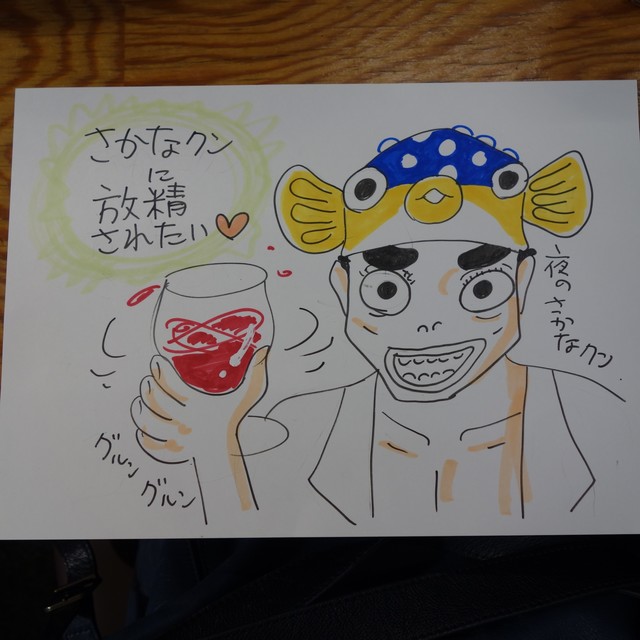 さかなクン
に
放精
されたい
夜のさかなクン
グルン
グルン